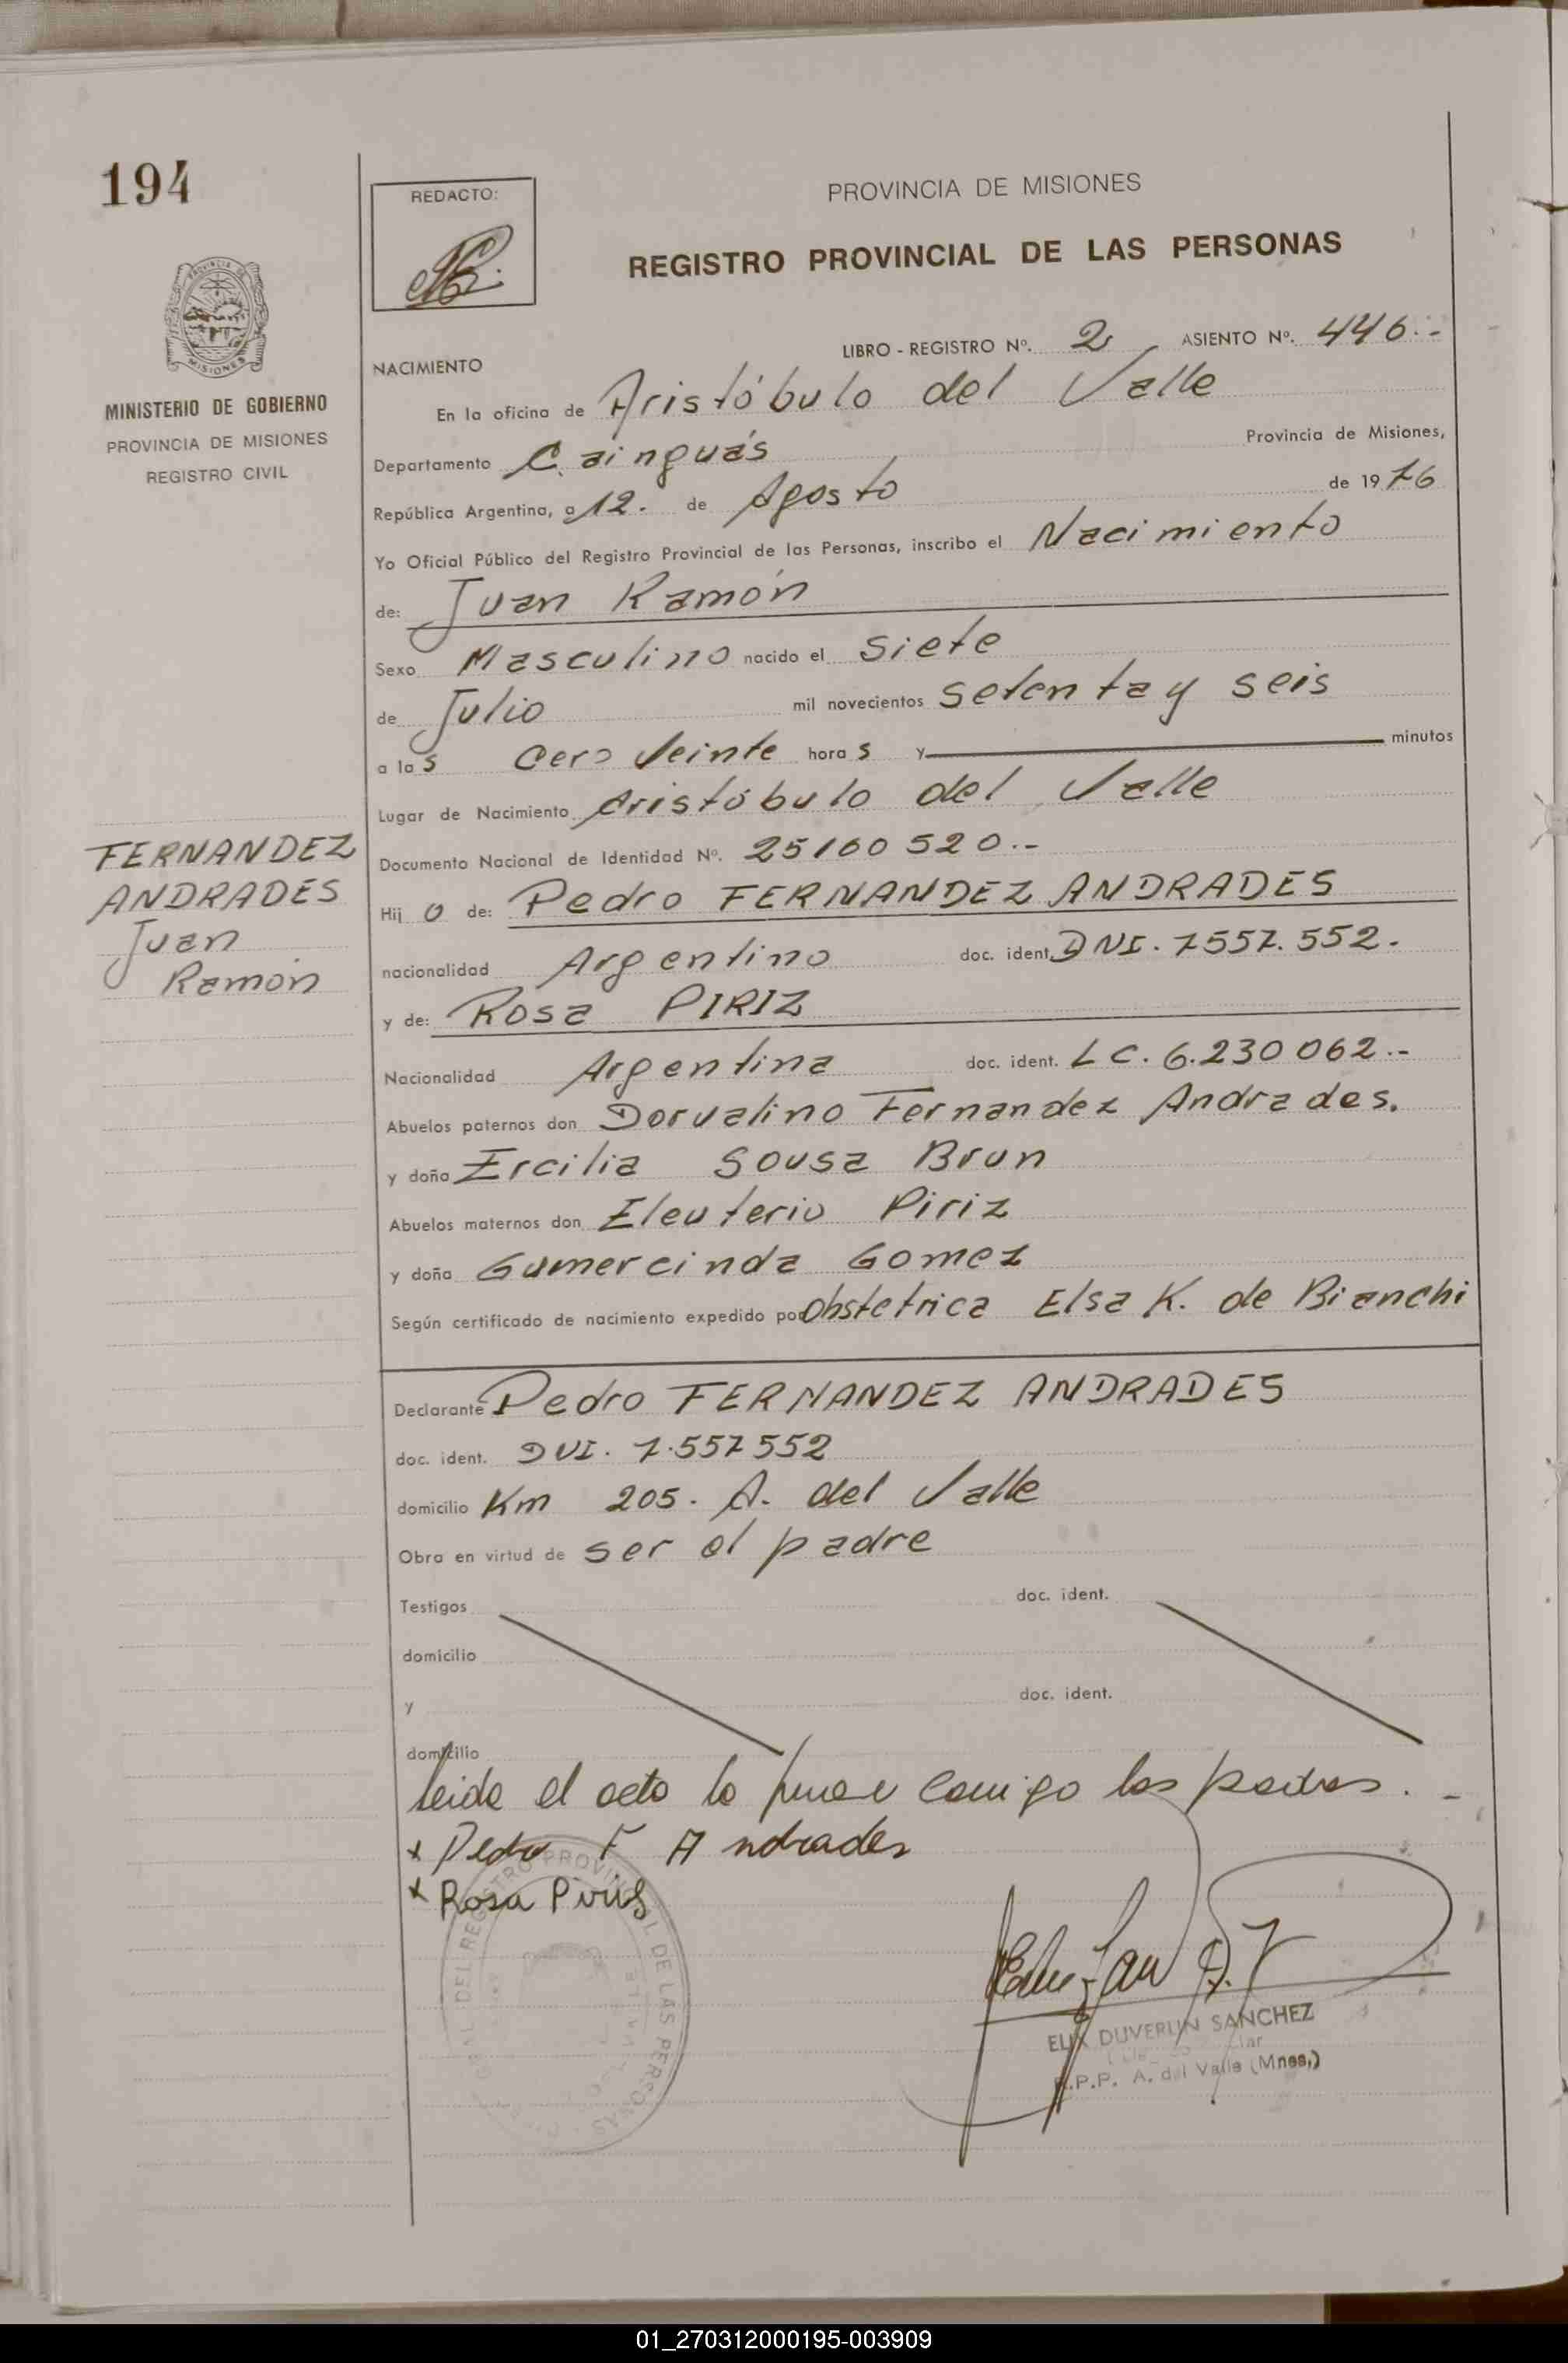 194
REDACTO:
PROVINCIA DE MISIONES
REGISTRO PROVINCIAL DE LAS PERSONAS
PROVINCIA DE
MISIONES
MINISTERIO DE GOBIERNO
PROVINCIA DE MISIONES
REGISTRO CIVIL
LIBRO - REGISTRO Nº. 2 ASIENTO Nº. 446.-
NACIMIENTO
En la oficina de Aristóbulo del Valle
Departamento Cainguás Provincia de Misiones,
República Argentina, a 12. de Agosto de 1976
Yo Oficial Público del Registro Provincial de las Personas, inscribo el Nacimiento
de: Juan Ramón
Sexo Masculino nacido el siete
de Julio mil novecientos setenta y seis
a las Cero Veinte horas y minutos
Lugar de Nacimiento Aristóbulo del Valle
FERNANDEZ
ANDRADES
Juan
Ramón
Documento Nacional de Identidad Nº. 25160520.-
Hijo de: Pedro FERNANDEZ ANDRADES
nacionalidad Argentino doc. ident. DNI. 7557.552.
y de: Rosa PIRIZ
Nacionalidad Argentina doc. ident. LC. 6.230062.-
Abuelos paternos don Dorvalino Fernandez Andrades.
y doña Ercilia Sousa Brun
Abuelos maternos don Eleuterio Piriz
y doña Gumercinda Gomez
Según certificado de nacimiento expedido por Obstetrica Elsa K. de Bianchi
Declarante Pedro FERNANDEZ ANDRADES
doc. ident. DNI. 7.557552
domicilio Km 205. A. del Valle
Obra en virtud de ser el padre
Testigos doc. ident.
domicilio
y doc. ident.
domicilio
leida el acta la firman conmigo los padres. -
x Pedro F Andrades
x Rosa Piris
ELIX DUVERLIN SANCHEZ
R.P.P. A. del Valle (Mnes,)
DEL REGISTRO PROVINCIAL DE LAS PERSONAS
01_270312000195-003909